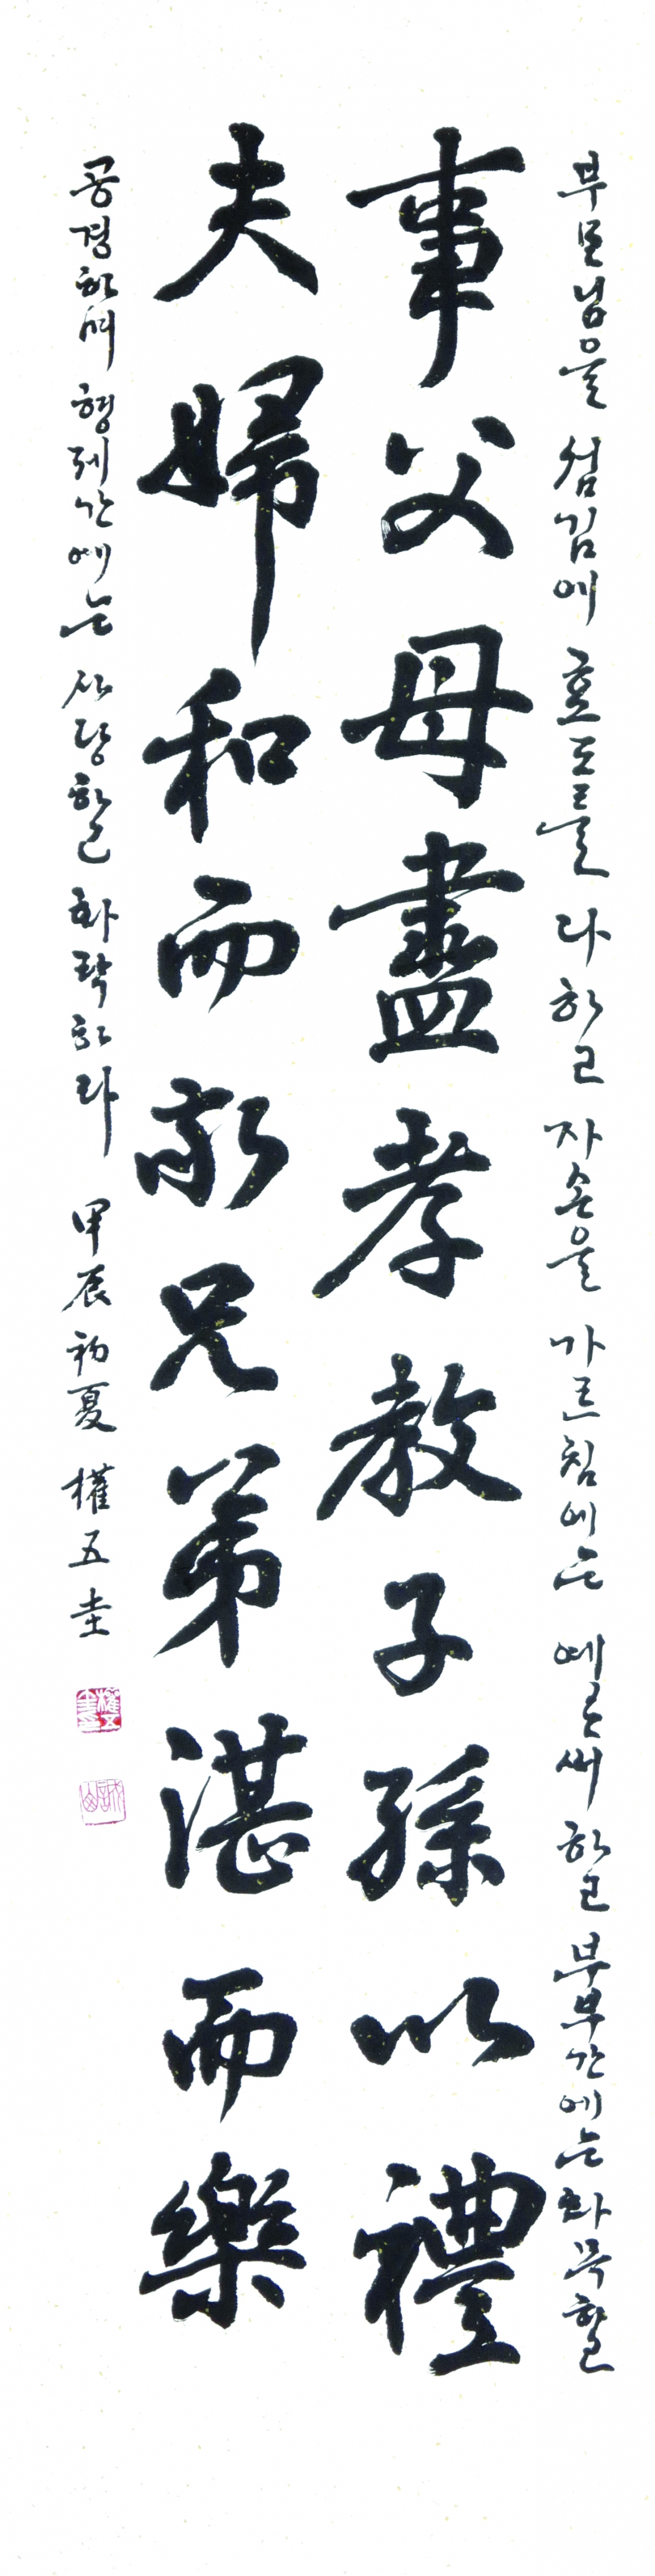 부모님을 섬김에 효도를 다하고 자손을 가르침에는 예로써 하고 부부간에는 화목하고
事父母盡孝教子孫以禮
夫婦和而敬兄弟湛而樂
공경하며 형제간에는 사랑하고 화락하라 甲辰初夏 權五圭